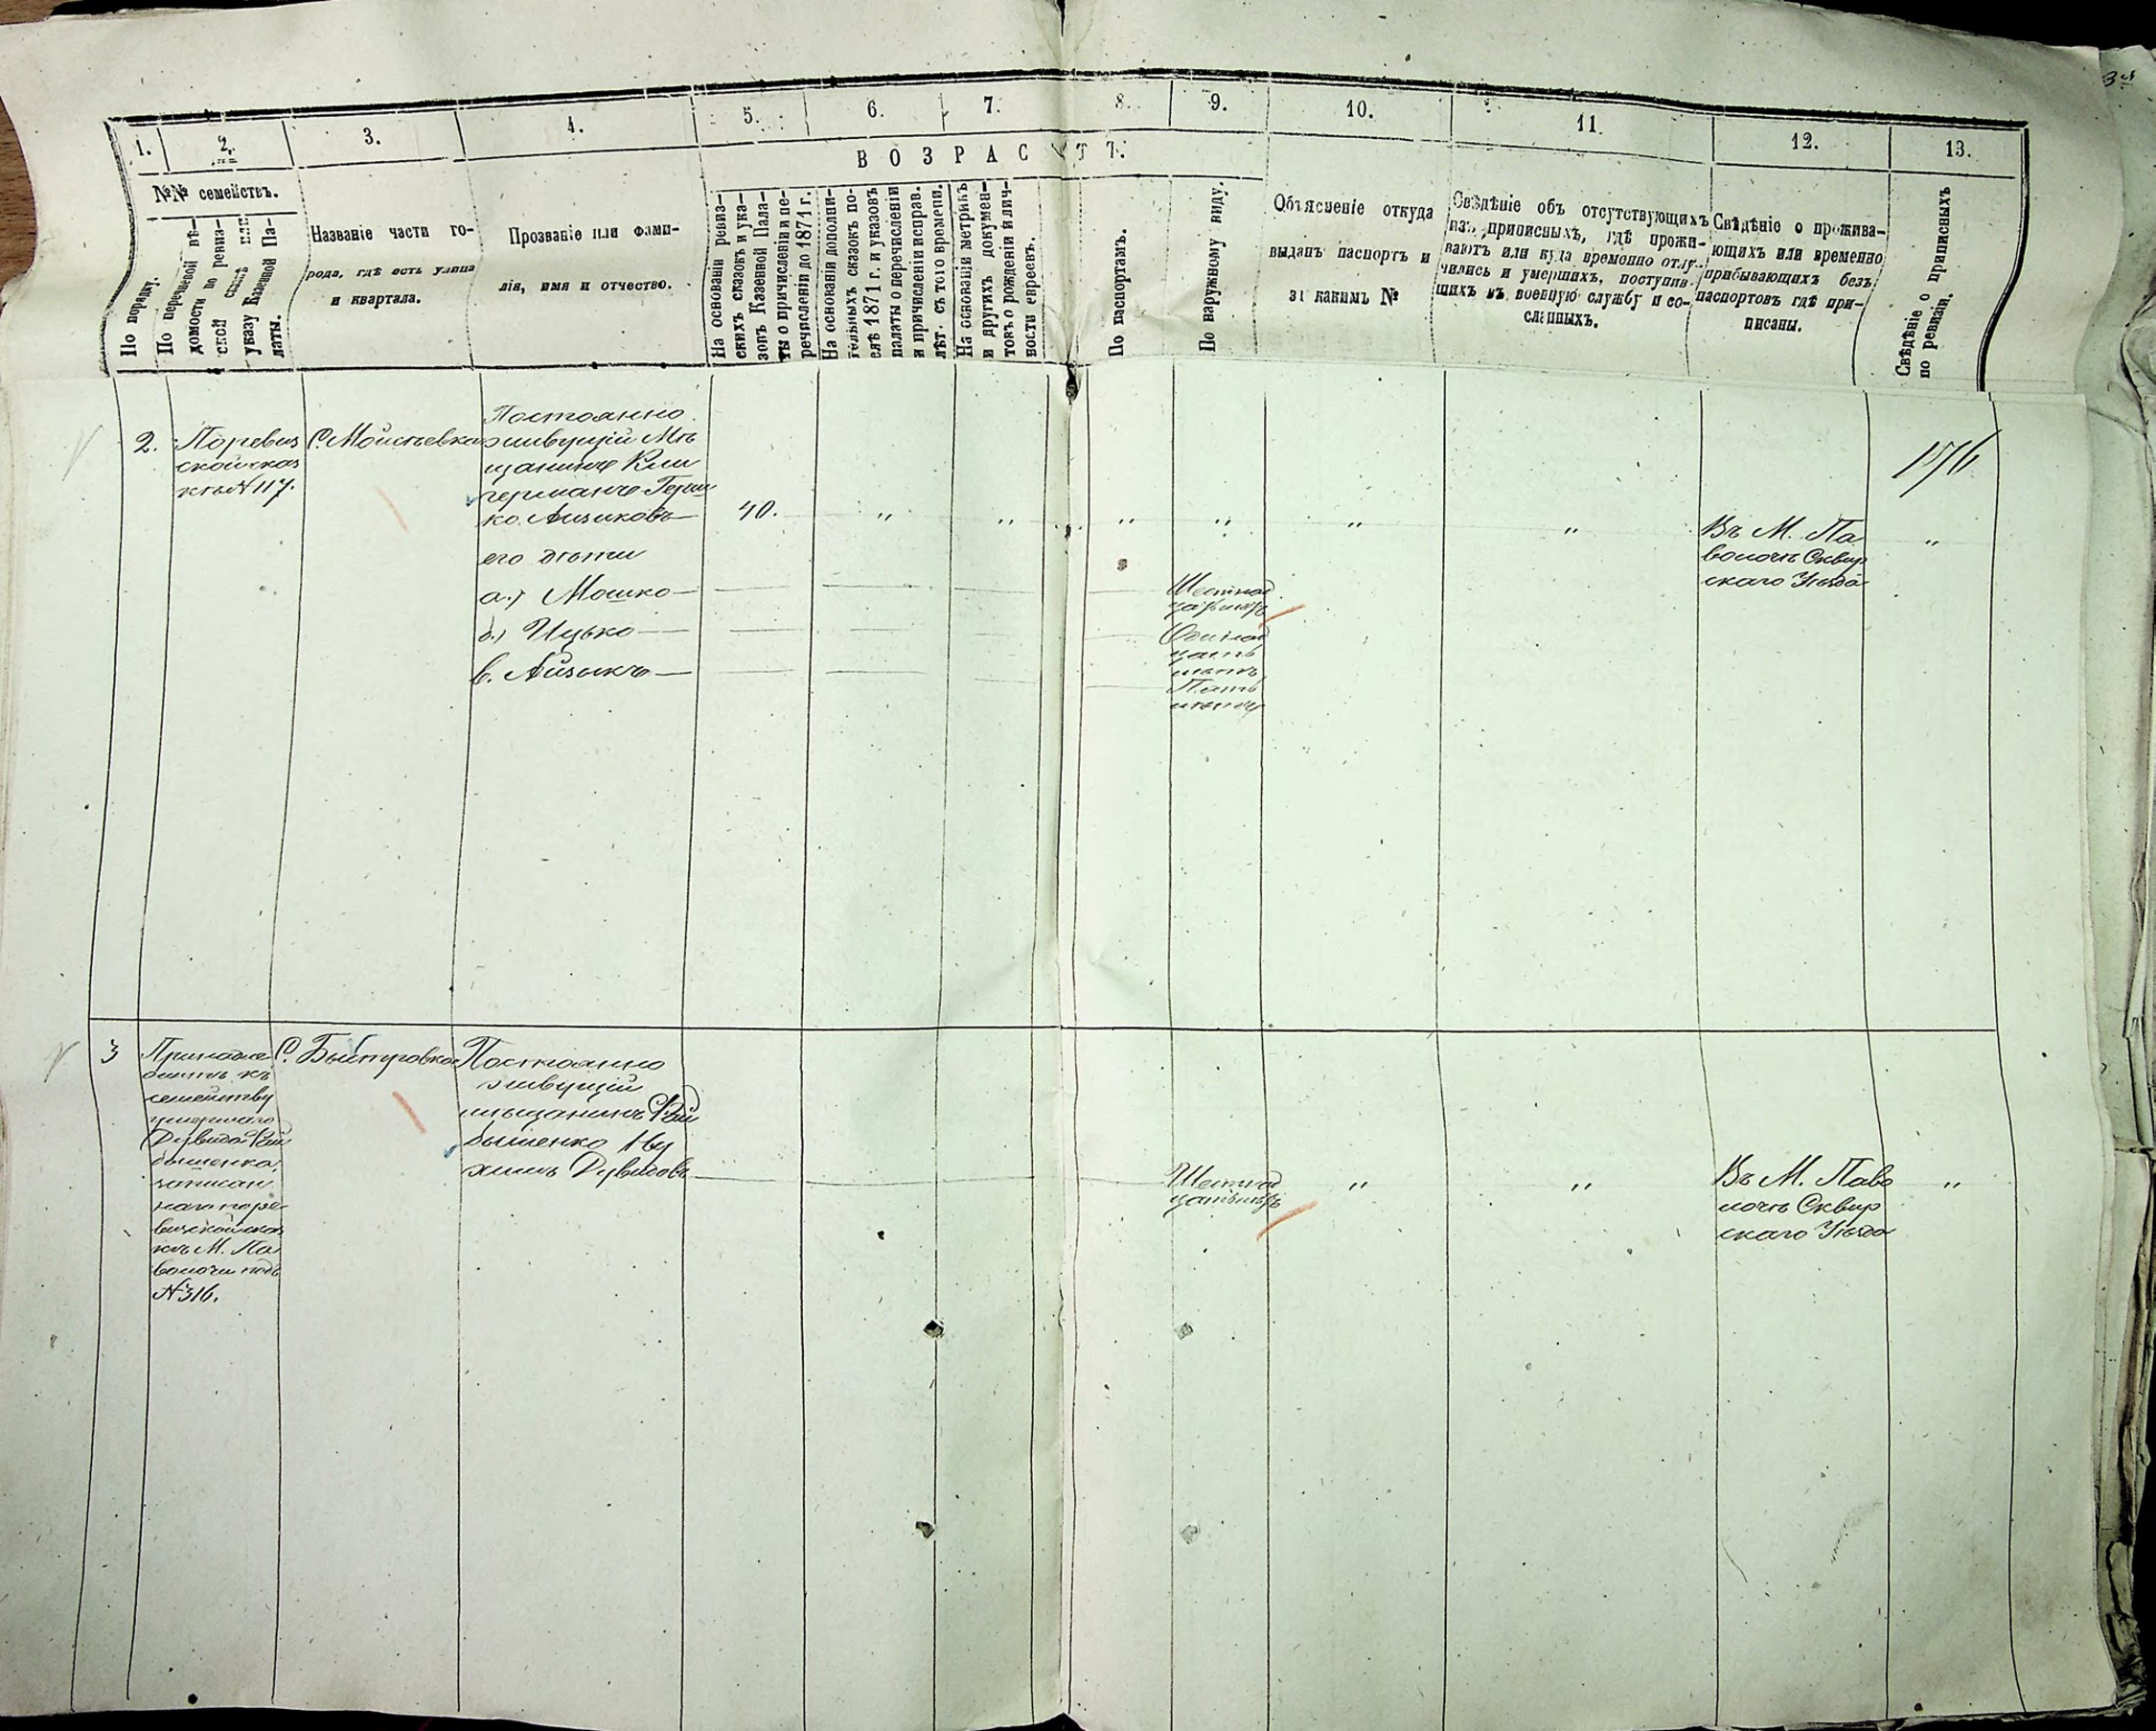 1.
2.
3.
4.
5.
6.
7.
8.
9.
10.
11.
12.
13.
ВОЗРАСТЪ.
№№ семействъ.
По порядку.
По перечневой вѣ-
домости по ревиз-
ской сказкѣ или
указу Казенной Па-
латы.
Названіе части го-
рода, гдѣ есть улица
и квартала.
Прозваніе или фами-
лія, имя и отчество.
На основаніи ревиз-
скихъ сказокъ и ука-
зовъ Казенной Пала-
ты о причисленіи и пе-
речисленіи до 1871 г.
На основаніи дополни-
тельныхъ сказокъ по-
слѣ 1871 г. и указовъ
палаты о перечисленіи
и причисленіи исправ.
лѣт. съ того времени.
На основаніи метрикъ
и другихъ докумен-
товъ о рожденіи и лич-
ности евреевъ.
По паспортамъ.
По наружному виду.
Объясненіе откуда
выданъ паспортъ и
за какимъ №
Свѣдѣніе объ отсутствующихъ
изъ приписныхъ, гдѣ прожи-
ваютъ или куда временно отлу-
чились и умершихъ, поступив-
шихъ въ военную службу и со-
сланныхъ.
Свѣдѣніе о прожива-
ющихъ или временно
прибывающихъ безъ
паспортовъ гдѣ при-
писаны.
Свѣдѣніе о приписныхъ
по ревизіи.
2.
По ревиз
ской сказ
кѣ № 117.
С. Моисѣевка
Постоянно
живущій Мѣ
щанинъ Кли
германъ Герш
ко Аизиковъ
40.
Въ М. Па
волочѣ Сквир
скаго Уѣзда
его дѣти
а.) Мошко
Шестнад
цать лѣтъ
б.) Ицько
Одинад
цать
лѣтъ
в. Айзикъ
Пять
лѣтъ
3
Принадле
житъ къ
семейству
умершаго
Дувида
записан
наго по ре
визской сказ
кѣ М. Па
волочи подъ
№ 316.
С. Быстровка
Постоянно
живущій
мѣщанинъ
Ну
химъ Дувидовъ
Шестнад
цать лѣтъ
Въ М. Паво
лочѣ Сквир
скаго Уѣзда